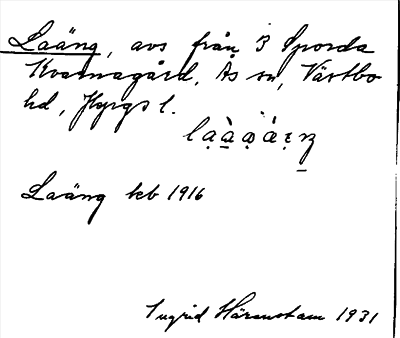 Laäng, avs från 3 Sporda
Kvarnagård, Ås sn, Västbo
hd, Jkpgs l.
Laäng kb 1916
Ingrid Härenstam 1931